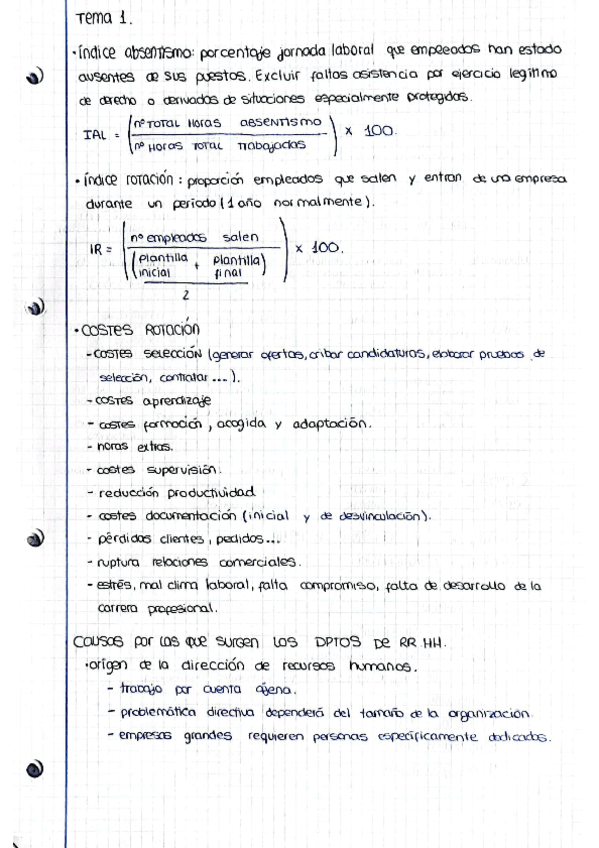 Tema 1.
· índice absentismo: porcentaje jornada laboral que empleados han estado
ausentes de sus puestos. Excluir faltas asistencia por ejercicio legítimo
de derecho o derivados de situaciones especialmente protegidas.
IAL = (nº TOTAL HORAS ABSENTISMO / nº HORAS TOTAL TRABAJADAS) x 100.
· índice rotación: proporción empleados que salen y entran de una empresa
durante un periodo (1 año normalmente).
IR = (nº empleados salen / ((plantilla inicial + plantilla final) / 2)) x 100.
· COSTES ROTACIÓN
- COSTES SELECCIÓN (generar ofertas, cribar candidaturas, elaborar pruebas de
selección, contratar ...).
- COSTES aprendizaje
- costes formación, acogida y adaptación.
- horas extras.
- costes supervisión.
- reducción productividad
- costes documentación (inicial y de desvinculación).
- pérdidas clientes, pedidos...
- ruptura relaciones comerciales.
- estrés, mal clima laboral, falta compromiso, falta de desarrollo de la
carrera profesional.
CAUSAS por LAS QUE SURGEN LOS DPTOS DE RR HH.
· origen de la dirección de recursos humanos.
- trabajo por cuenta ajena.
- problemática directiva dependerá del tamaño de la organización.
- empresas grandes requieren personas específicamente dedicadas.